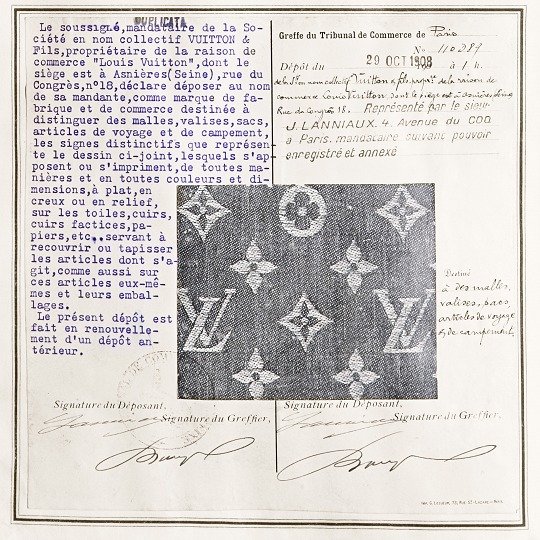 DUPLICATA
Le soussigné,mandataire de la So-
ciété en nom collectif VUITTON &
Fils,propriétaire de la raison de
commerce "Louis Vuitton",dont le
siège est à Asnières(Seine),rue du
Congrès,nº18,déclare déposer au nom
de sa mandante,comme marque de fa-
brique et de commerce destinée à
distinguer des malles,valises,sacs,
articles de voyage et de campement,
les signes distinctifs que représen-
te le dessin ci-joint,lesquels s'ap-
posent ou s'impriment,de toutes ma-
nières et en toutes couleurs et di-
mensions,à plat,en
creux ou en relief,
sur les toiles,cuirs,
cuirs factices,pa-
piers,etc.,servant à
recouvrir ou tapisser
les articles dont s'a-
git,comme aussi sur
ces articles eux-mê-
mes et leurs embal-
lages.
Le présent dépôt est
fait en renouvelle-
ment d'un dépôt an-
térieur.
Signature du Déposant,
Signature du Greffier,
Greffe du Tribunal de Commerce de Paris
No 110287
Dépôt du 29 OCT 1908 à 1 h.
de la Sté en nom collectif Vuitton & fils, propre de la raison de
commerce Louis Vuitton, dont le siège est à Asnières, Seine
Rue du Congrès 18. Représenté par le sieur
J. LANNIAUX. 4. Avenue du COQ
à Paris. mandataire suivant pouvoir
enregistré et annexé
LV
LV
Destiné
à des malles,
valises, sacs,
articles de voyage
& de campement
Signature du Déposant,
Signature du Greffier,